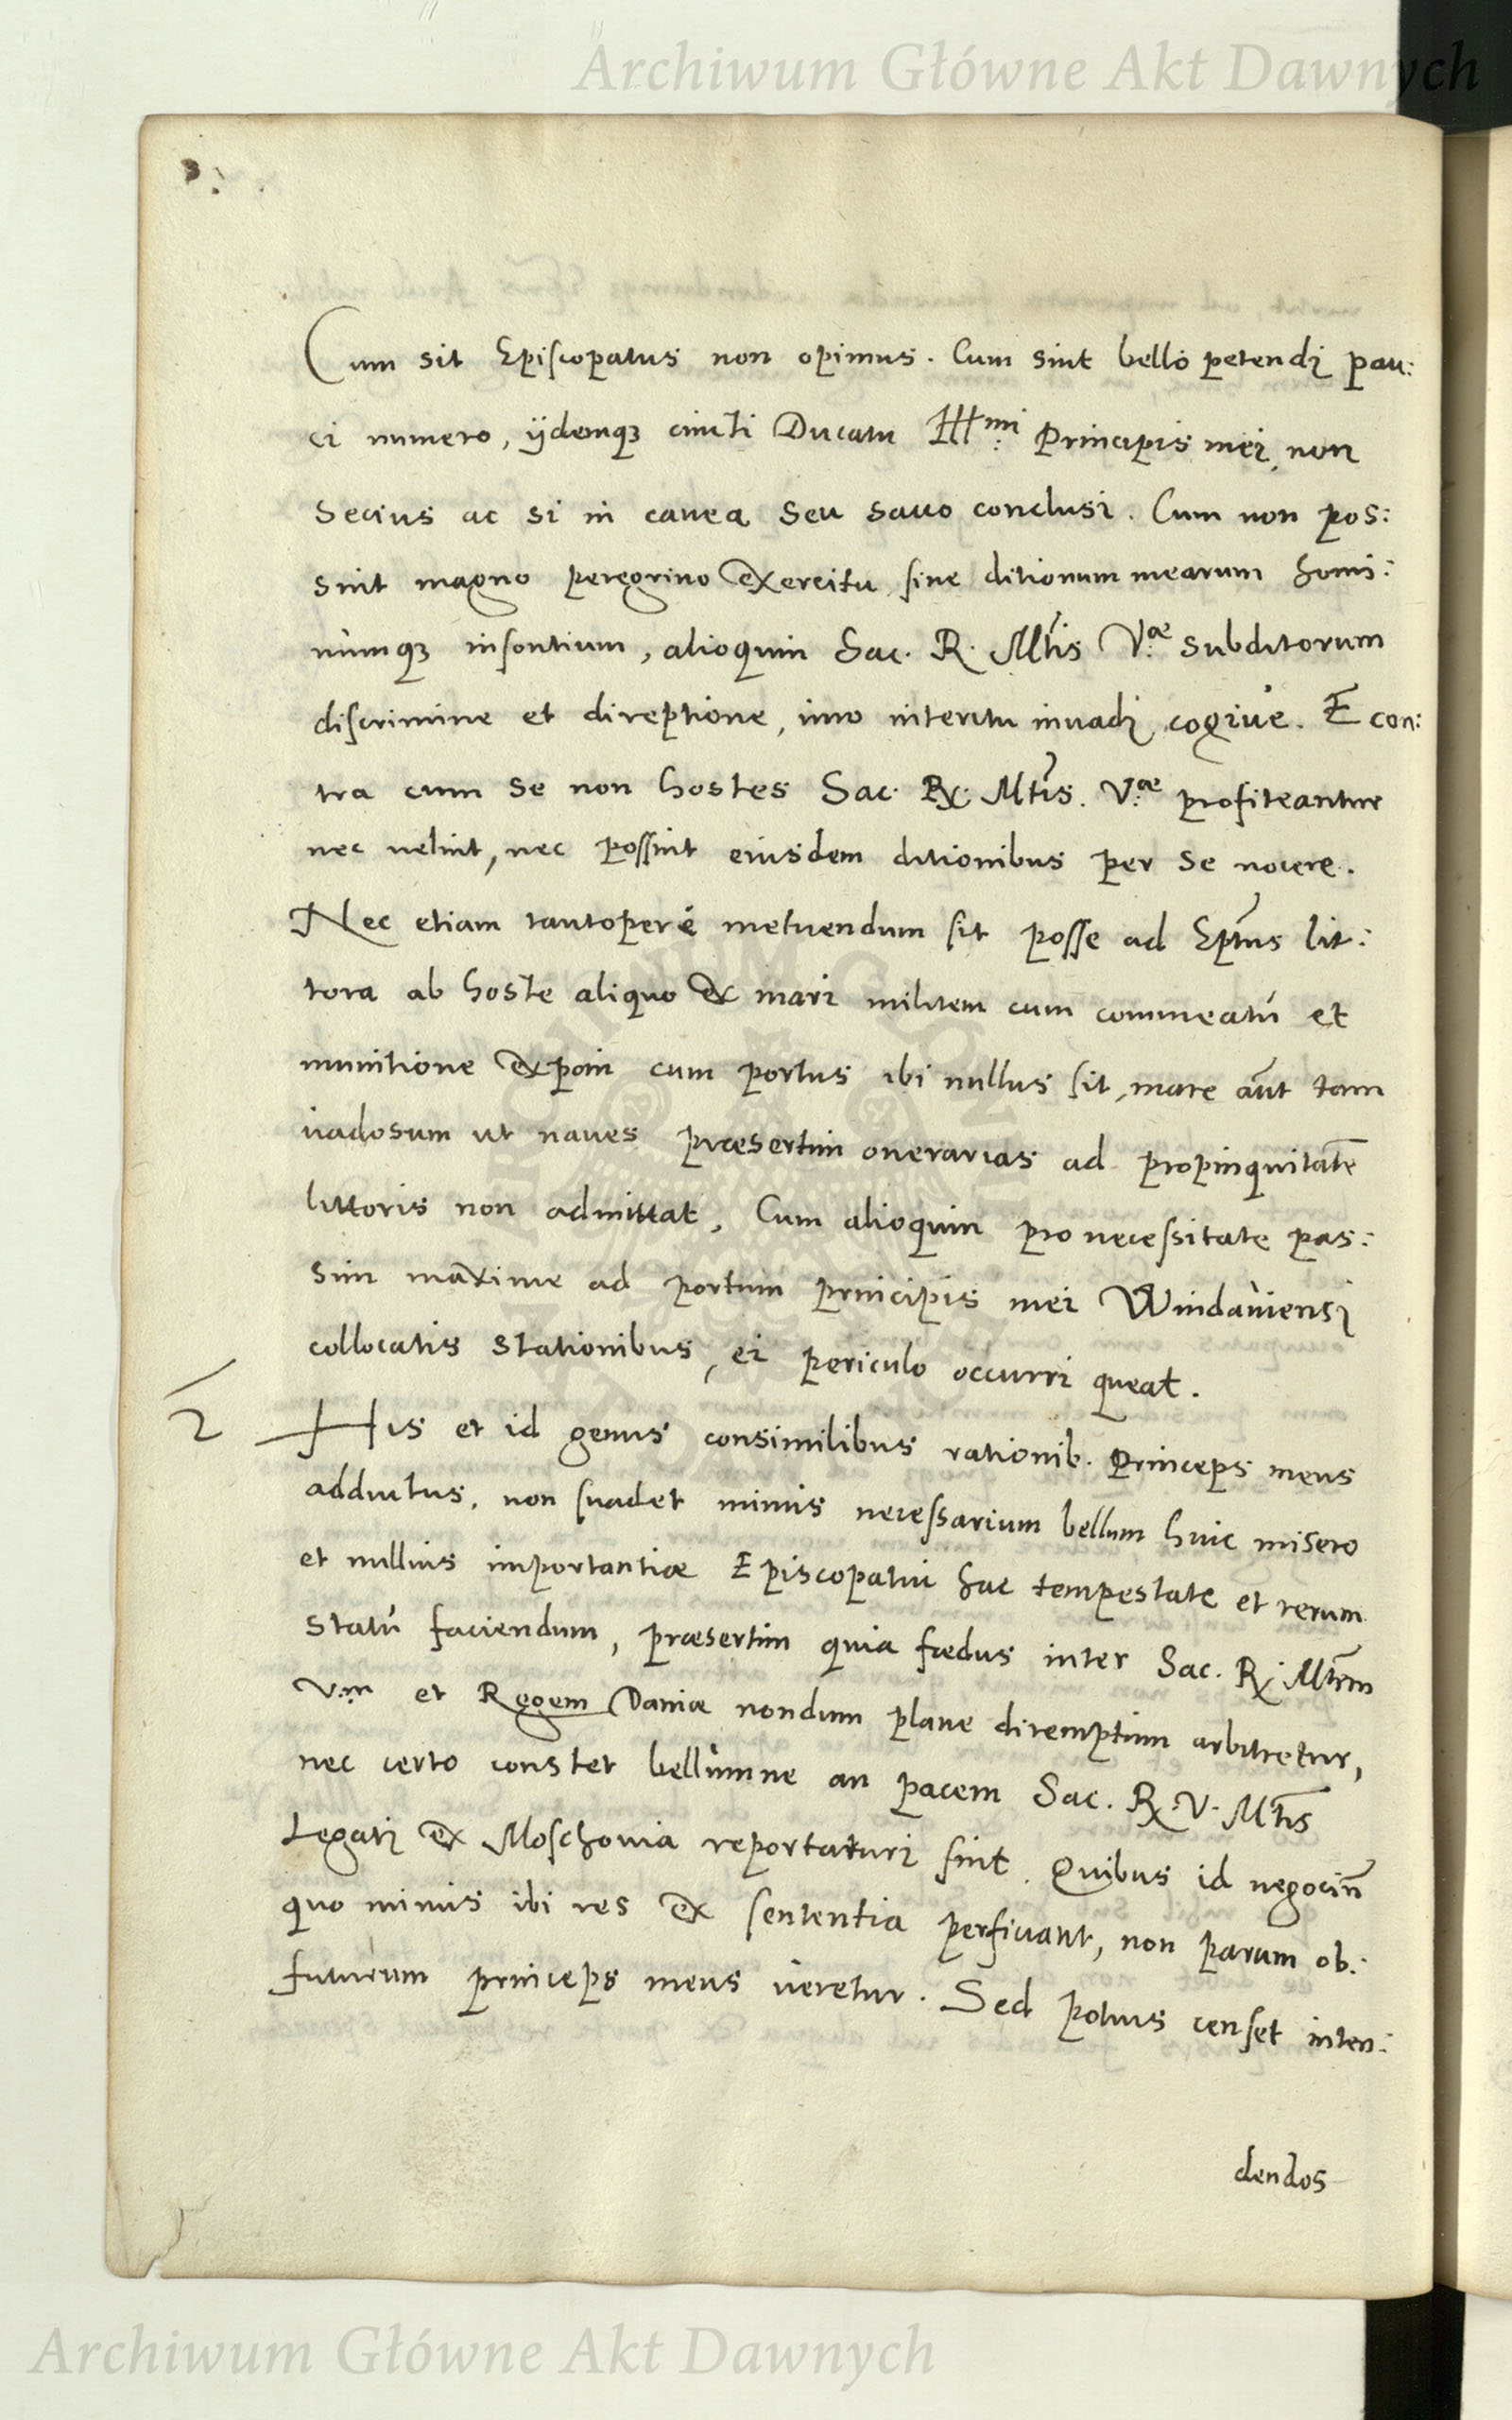 Archiwum Główne Akt Dawnych
3.
Cum sit Episcopatus non opimus. Cum sint bello petendi pau:
ci numero, ijdemq3 cincti Ducatu Illmi Principis mei, non
Secius ac si in cauea seu sacco conclusi. Cum non pos:
sint magno peregrino exercitu, sine ditionum mearum homi:
numq3 insontium, alioquin Sac. R. Mtis V.ae subditorum
discrimine et direptione, imo interitu inuadi, cogiue. E con:
tra cum se non hostes Sac. Rx. Mtis. V.ae profiteantur
nec uelint, nec possint eiusdem ditionibus per se nocere.
Nec etiam tantoperè metuendum sit posse ad Eptus lit:
tora ab hoste aliquo ex mari militem cum commeatú et
munitione exponi cum portus ibi nullus sit, mare aūt tam
uadosum ut naues praesertim onerarias ad propinquitatē
littoris non admittat, Cum alioquin pro necessitate pas:
sim maxime ad portum principis mei Windauiensi
collocatis stationibus, ei periculo occurri queat.
2 His et id genus consimilibus rationib. Princeps meus
adductus, non suadet minus necessarium bellum huic misero
et nullius importantiae Episcopatui hac tempestate et rerum
statú faciendum, praesertim quia foedus inter Sac. Rx. Mtem
V.m et Regem Daniae nondum plane diremptum arbitretur,
nec certo constet bellumne an pacem Sac. Rx. V. Mtis
Legati ex Moschouia reportaturi sint. Quibus id negociū
quo minus ibi res ex sententia perficiant, non parum ob:
futurum princeps meus ueretur. Sed potius censet inten:
dendos
Archiwum Główne Akt Dawnych